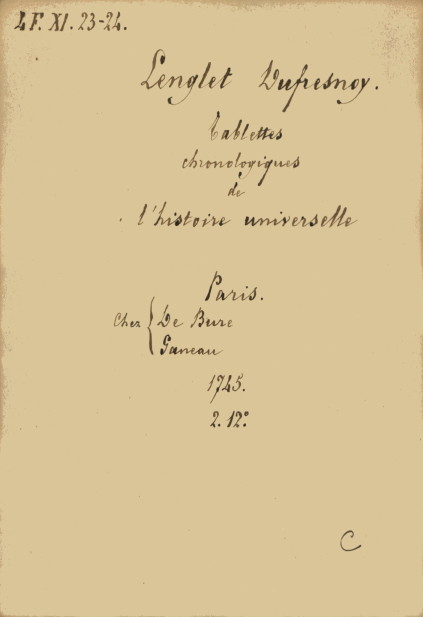 4 F. XI. 23-24.
Lenglet Dufresnoy.
Tablettes
chronologiques
de
l'histoire universelle
Paris.
Chez { De Bure
Ganeau
1745.
2. 12º
C